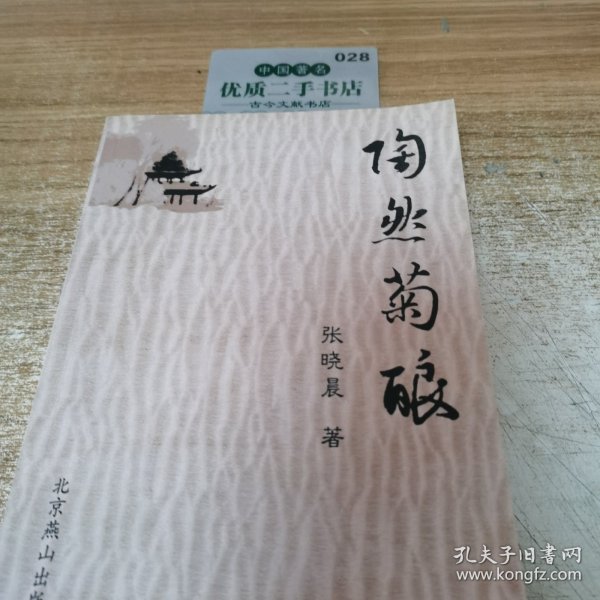 028
中国著名
优质二手书店
古今文献书店
陶然菊酿
张晓晨 著
北京燕山出版
孔夫子旧书网
www.kongfz.com